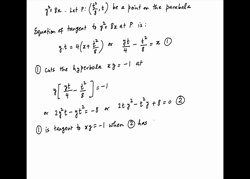 y² = 8x. Let P: (t²/8, t) be a point on the parabola
Equation of tangent to y² = 8x at P is:
yt = 4(x + t²/8) or yt/4 - t²/8 = x ①
① Cuts the hyperbola xy = -1 at
y[yt/4 - t²/8] = -1
or 2y²t - yt² = -8 or 2ty² - t²y + 8 = 0 ②
① is tangent to xy = -1 when ② has